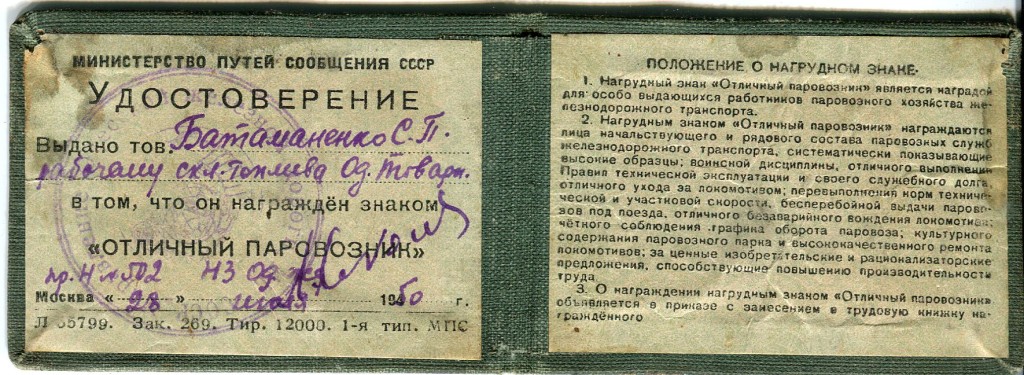 МИНИСТЕРСТВО ПУТЕЙ СООБЩЕНИЯ СССР
УДОСТОВЕРЕНИЕ
Выдано тов. Батаманенко С.П.
рабочему скл. топлива Од. Товарн.
в том, что он награждён знаком
«ОТЛИЧНЫЙ ПАРОВОЗНИК»
пр. Н № 502 НЗ Од. ж.д.
Москва « 28 » 1950 г.
Л 65799. Зак. 269. Тир. 12000. 1-я тип. МПС
ПОЛОЖЕНИЕ О НАГРУДНОМ ЗНАКЕ
1. Нагрудный знак «Отличный паровозник» является наградой
для особо выдающихся работников паровозного хозяйства же-
лезнодорожного транспорта.
2. Нагрудным знаком «Отличный паровозник» награждаются
лица начальствующего и рядового состава паровозных служб
железнодорожного транспорта, систематически показывающие
высокие образцы; воинской дисциплины, отличного выполнения
Правил технической эксплуатации и своего служебного долга,
отличного ухода за локомотивом; перевыполнения норм техниче-
ческой и участковой скорости, бесперебойной выдачи парово-
зов под поезда, отличного безаварийного вождения локомотива;
чёткого соблюдения графика оборота паровоза; культурного
содержания паровозного парка и высококачественного ремонта
локомотивов; за ценные изобретательские и рационализаторские
предложения, способствующие повышению производительности
труда.
3. О награждении нагрудным знаком «Отличный паровозник»
объявляется в приказе с занесением в трудовую книжку на-
граждённого